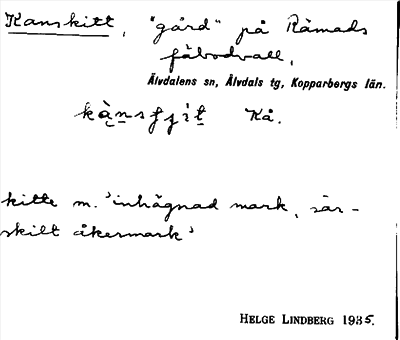 Kanskitt, "gård" på Råmads
fäbodvall,
Älvdalens sn, Älvdals tg, Kopparbergs län.
Kå.
kitte m. 'inhägnad mark, sär-
skilt åkermark'
HELGE LINDBERG 1935.